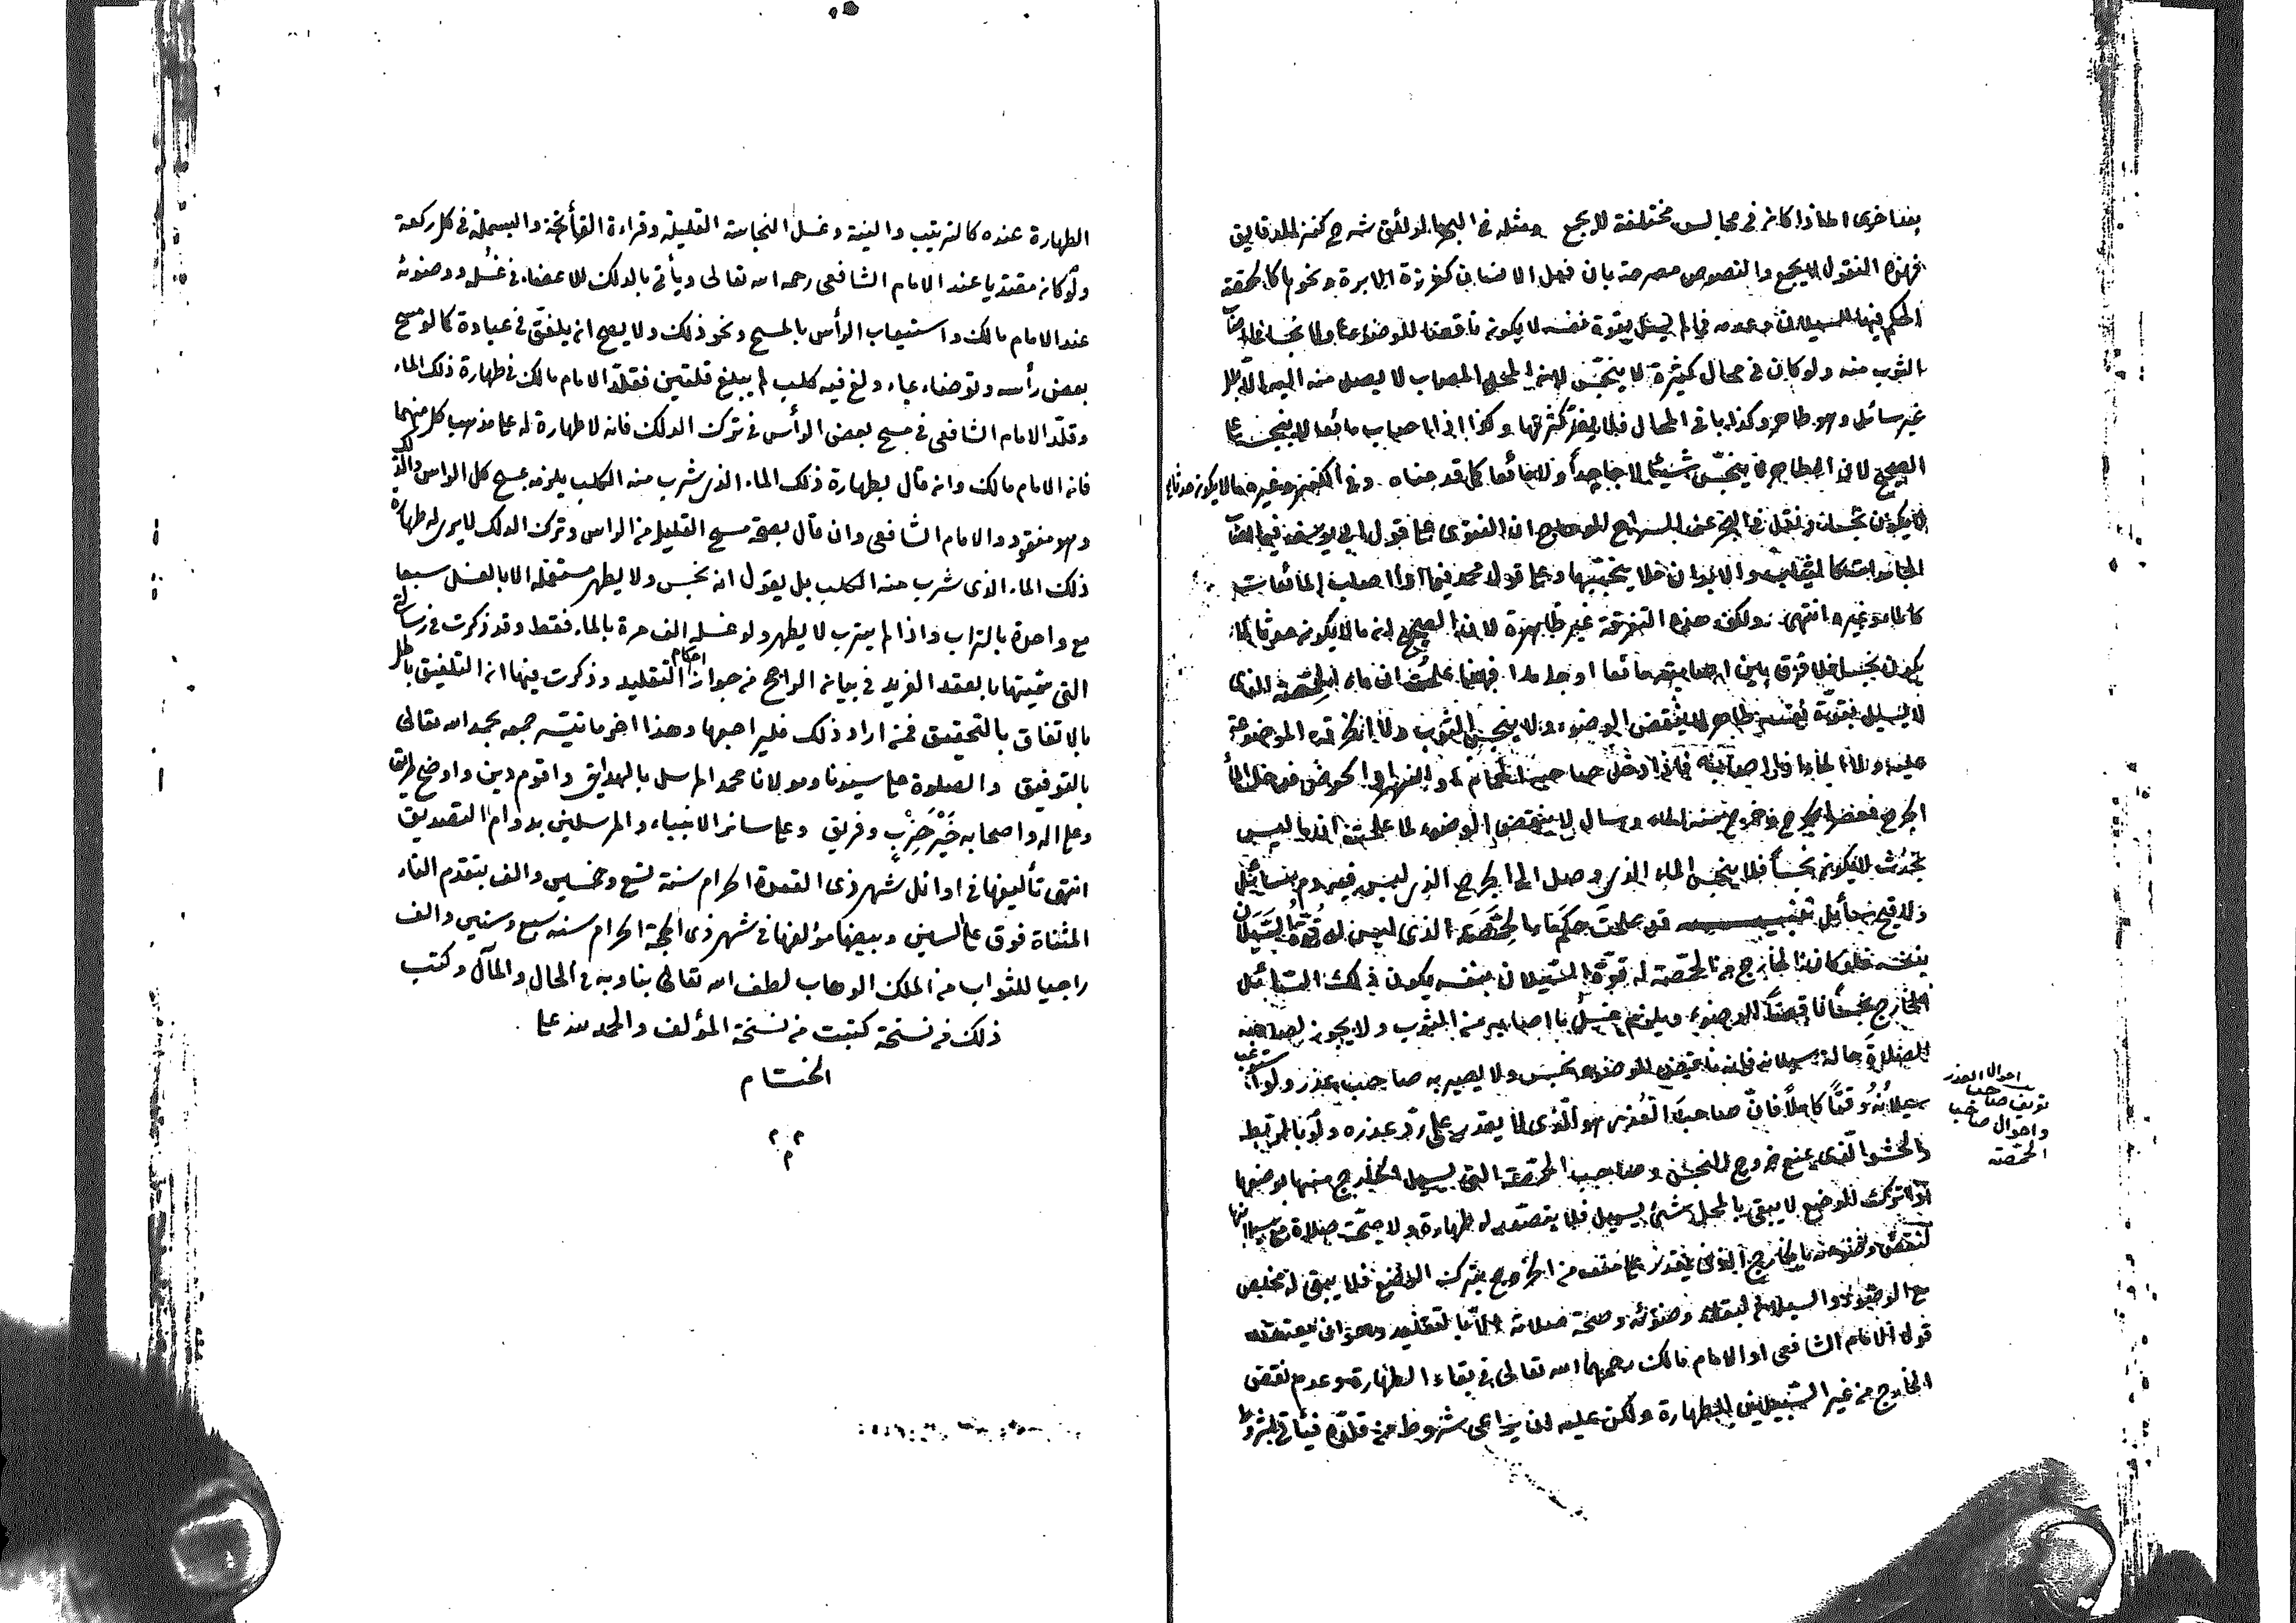 بعد اخرى اما اذا كان في مجالس مختلفة لا يجمع ومثله في البحر الرائق شرح كنز الدقائق
فهذه النقول والنصوص مصرحة بان
الحكم فيها للسيلان وعدمه فما لم يسل بقوة نفسه لا يكون ناقضا للوضوء ولا نجسا
الثوب منه ولو كان في محال كثيرة لا ينجس لان المحل المصاب لا يصل منه اليه الا بلل
غير سائل وهو طاهر وكذا باقي المحال فلا يضر كثرتها وكذا اذا اصاب مائعا لا ينجس على
الصحيح لان الطاهر لا ينجس شيئا لا جامدا ولا مائعا كما قدمناه وفي الكنز وغيره ما لا يكون حدثا
لا يكون نجسا ونقل في عن السراج الوهاج ان الفتوى على قول ابي يوسف فيما اصاب
الجامدات كالثياب والابدان فلا ينجسها وعلى قول محمد فيما اذا اصاب المائعات
كالماء وغيره انتهى ولكن هذه التفرقة غير ظاهرة لان الصحيح ان ما لا يكون حدثا لا
يكون نجسا فلا فرق بين اصابته مائعا او جامدا فبهذا علمت ان ماء الحمصة الذي
لا يسيل بقوة نفسه طاهر لا ينقض الوضوء ولا ينجس الثوب ولا الخرقة الموضوعة
عليه ولا الماء اذا اصابه فاذا دخل صاحب الحمام او النهر او الحوض فدخل الماء
الجرح فعصر الجرح فخرج منه الماء وسال لا ينقض الوضوء لما علمته ان ما ليس
بحدث لا يكون نجسا فلا ينجس الماء الذي وصل الى الجرح الذي ليس فيه دم سائل
ولا قيح سائل تنبيه قد علمت حكم ماء الحمصة الذي ليس له قوة السيلان
بنفسه فلو كان الخارج من الحمصة له قوة السيلان بنفسه يكون ذلك السائل
الخارج نجسا ناقضا للوضوء ويلزم غسل ما اصابه من الثوب ولا يجوز لصاحبه
الصلاة حالة سيلانه فانه ناقض للوضوء نجس ولا يصير به صاحب عذر ولو استوعب
سيلانه وقتا كاملا فان صاحب العذر هو الذي لا يقدر على رد عذره ولو بالربط
والحشو الذي يمنع خروج النجس وصاحب الحمصة التي يسيل الخارج منها بوضعها
اذا ترك الوضع لا يبقى بالمحل شئ يسيل فلا يتصور له طهارة ولا صحت صلاة مع سيلانها
لنقض وضوءه بالخارج الذي يقدر على منعه من الخروج بترك الوضع فلا يبقى له مخلص
مع الوضوء والسيلان لبقاء وضوئه وصحة صلاته الا بالتقليد وهو ان يعتقد
قول الامام الشافعي او الامام مالك رحمهما الله تعالى في بقاء الطهارة وعدم نقض
الخارج من غير السبيلين للطهارة ولكن عليه ان يراعى شروط من قلده فيأتي بشروط
احوال العذر
تعريف صاحب
واحوال صاحب
الحمصة
الطهارة عنده كالترتيب والنية وغسل النجاسة القليلة وقراءة الفاتحة والبسملة في كل ركعة
ولو كان مقتديا عند الامام الشافعي رحمه الله تعالى ويأتي بالدلك للاعضاء في غسله ووضوئه
عند الامام مالك واستيعاب الرأس بالمسح ونحو ذلك ولا يصح ان يلفق في عبادة كالو مسح
بعض رأسه وتوضاء بماء ولغ فيه كلب لم يبلغ قلتين فقلد الامام مالك في طهارة ذلك الماء
وقلد الامام الشافعي في مسح بعض الرأس في ترك الدلك فانه لا طهارة له على مذهب كل منهما
فان الامام مالك وان قال بطهارة ذلك الماء الذي شرب منه الكلب يلزمه بمسح كل الراس والدلك
وهو مفقود والامام الشافعي وان قال بصحة مسح القليل من الراس وترك الدلك لا يرى له طهارة
ذلك الماء الذي شرب منه الكلب بل يقول انه نجس ولا يطهر مستعمله الا بالغسل سبعا
مع واحدة بالتراب واذا لم يترب لا يطهر ولو غسله الف مرة بالماء فقط وقد ذكرت في رسالة
التي سميتها بالعقد الفريد في بيان الراجح من جواز احكام التقليد وذكرت فيها ان التلفيق باطل
بالاتفاق بالتحقيق فمن اراد ذلك فليراجعها وهذا اخر ما تيسر جمعه بحمد الله تعالى
بالتوفيق والصلوة على سيدنا ومولانا محمد المرسل بالهداية واقوم دين واوضح طريق
وعلى اله واصحابه خير حزب وفريق وعلى سائر الانبياء والمرسلين بدوام التصديق
انتهى تأليفها في اوائل شهر ذي القعدة الحرام سنة تسع وخمسين والف بتقدم التاء
المثناة فوق على السين وبيضها مؤلفها في شهر ذي الحجة الحرام سنه سبع وستين والف
راجيا للثواب من الملك الوهاب لطف الله تعالى بنا وبه في الحال والمآل وكتب
ذلك من نسخة كتبت من نسخة المؤلف والحمد لله على
الختام
م م
م